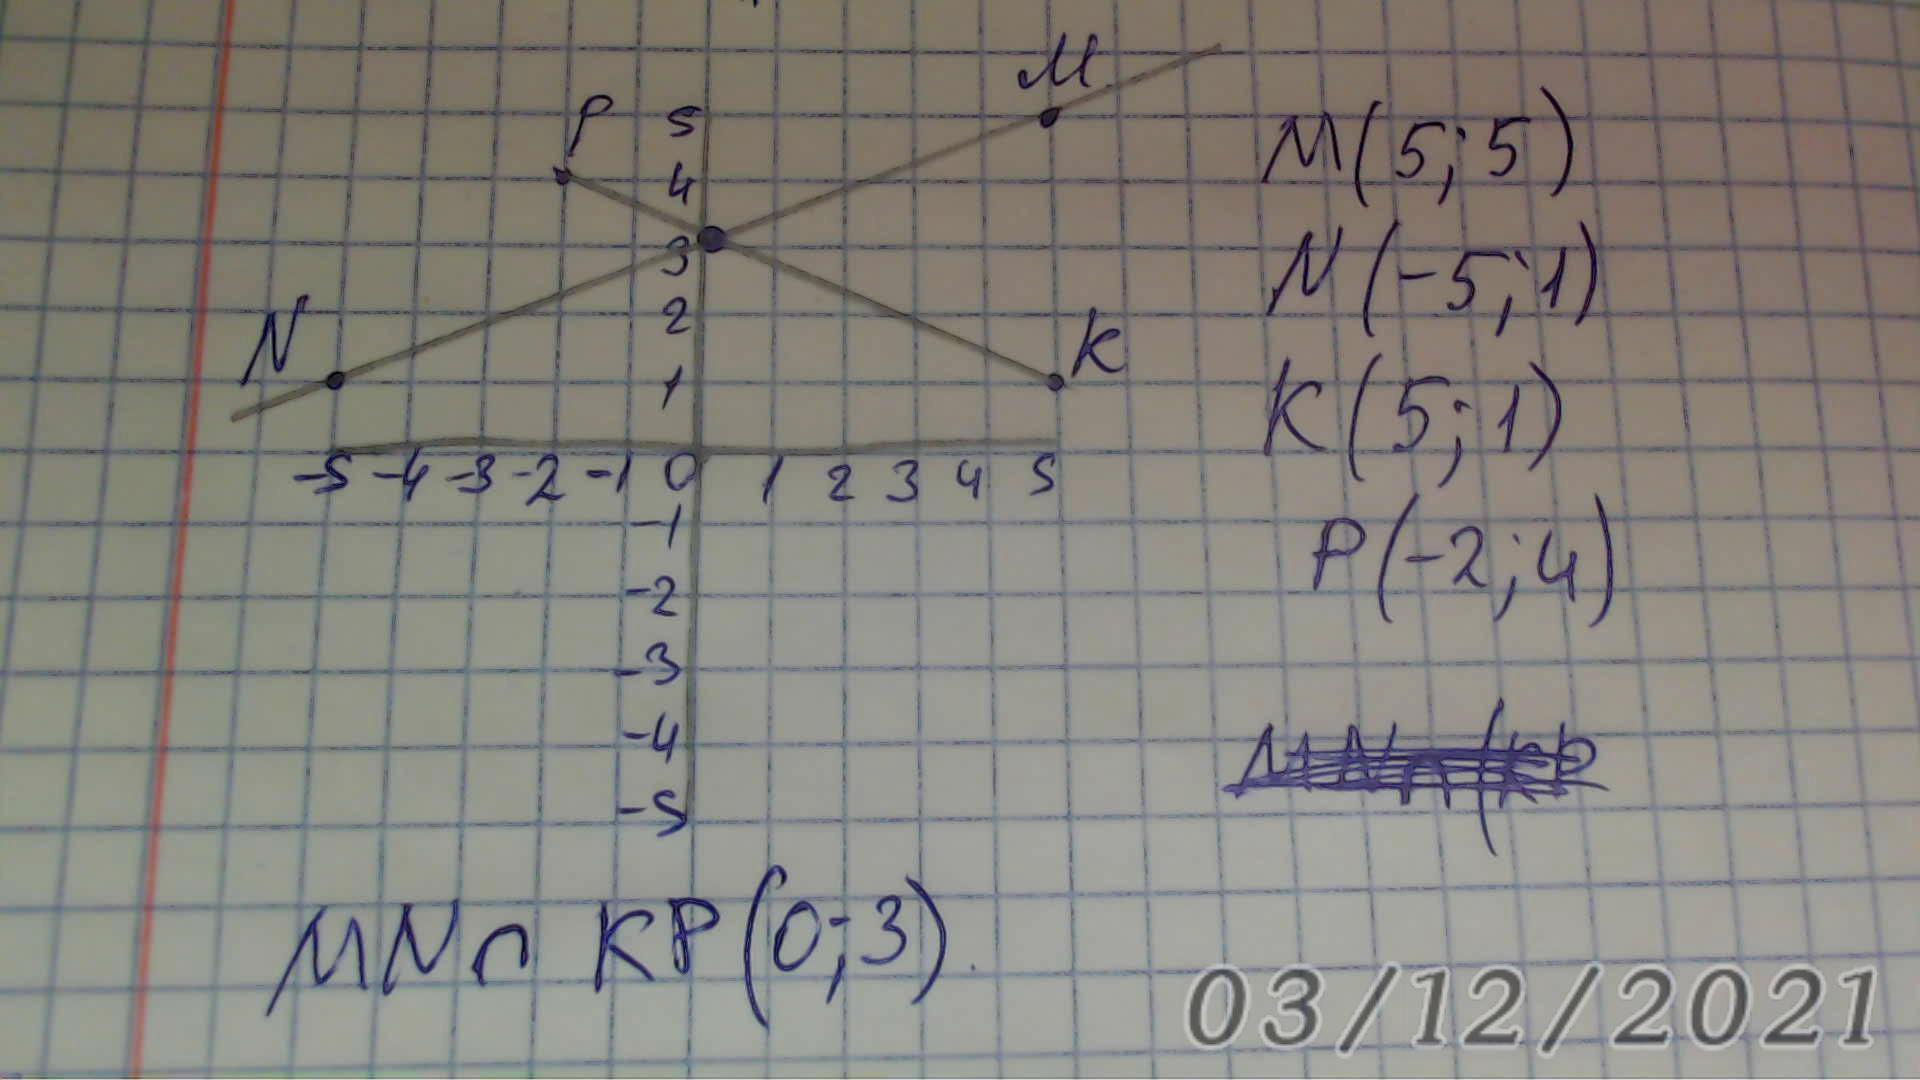 M
P 5
4
3
N 2
K
1
-5 -4 -3 -2 -1 0 1 2 3 4 5
-1
-2
-3
-4
-5
M(5;5)
N(-5;1)
K(5;1)
P(-2;4)
MN∩ KP(0;3).
03/12/2021